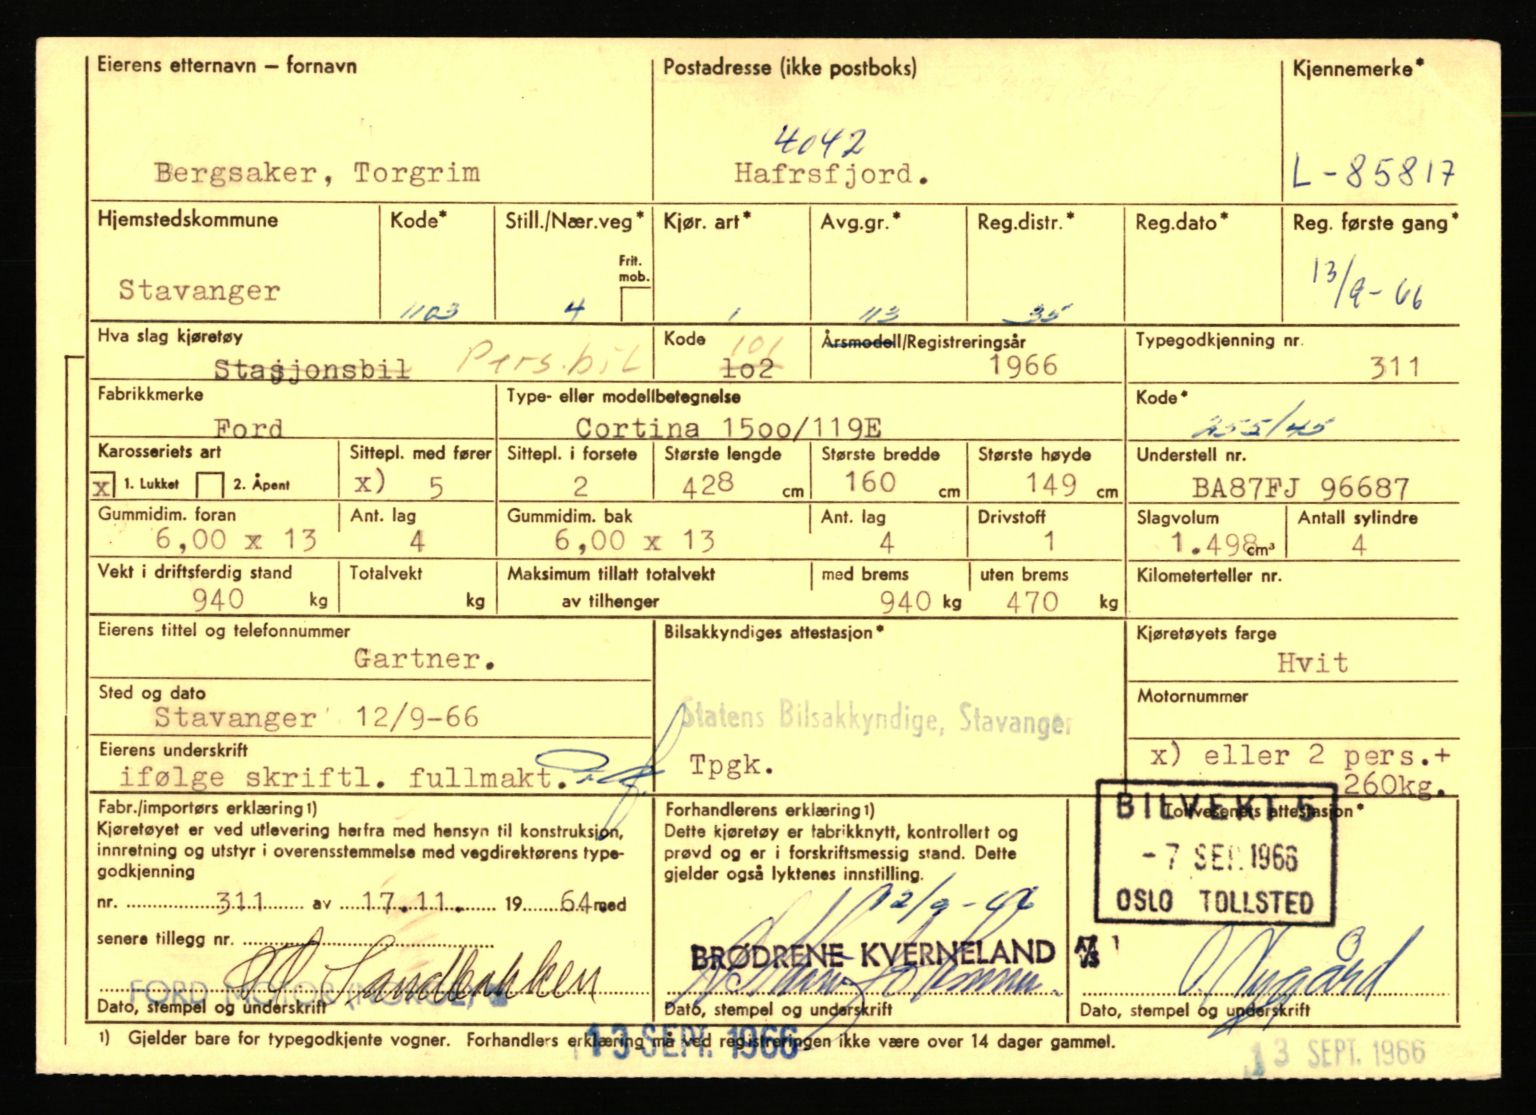 Eierens etternavn – fornavn Postadresse (ikke postboks) Kjennemerke*
4042
Bergsaker, Torgrim Hafrsfjord. L-85817
Hjemstedskommune Kode* Still./Nær.veg* Kjør. art* Avg.gr.* Reg.distr.* Reg.dato* Reg. første gang*
Frit. mob.
Stavanger 1103 4 1 113 35 13/9-66
Hva slag kjøretøy Kode Årsmodell/Registreringsår Typegodkjenning nr.
Stasjonsbil Pers.bil 1o2 101 1966 311
Fabrikkmerke Type- eller modellbetegnelse Kode*
Ford Cortina 15oo/119E 255/45
Karosseriets art Sittepl. med fører Sittepl. i forsete Største lengde Største bredde Største høyde Understell nr.
x 1. Lukket 2. Åpent x) 5 2 428 cm 160 cm 149 cm BA87FJ 96687
Gummidim. foran Ant. lag Gummidim. bak Ant. lag Drivstoff Slagvolum Antall sylindre
6,00 x 13 4 6,00 x 13 4 1 1.498 cm³ 4
Vekt i driftsferdig stand Totalvekt Maksimum tillatt totalvekt med brems uten brems Kilometerteller nr.
940 kg kg av tilhenger 940 kg 470 kg
Eierens tittel og telefonnummer Bilsakkyndiges attestasjon* Kjøretøyets farge
Gartner. Hvit
Sted og dato Motornummer
Stavanger 12/9-66 Statens Bilsakkyndige, Stavanger
Eierens underskrift x) eller 2 pers.+
ifølge skriftl. fullmakt. Tpgk. 260kg.
Fabr./importørs erklæring 1) Forhandlerens erklæring 1) Tollvesenets attestasjon*
BILVEKT 5
Kjøretøyet er ved utlevering herfra med hensyn til konstruksjon, Dette kjøretøy er fabrikknytt, kontrollert og
innretning og utstyr i overensstemmelse med vegdirektørens type- prøvd og er i forskriftsmessig stand. Dette
- 7 SEP. 1966
godkjenning gjelder også lyktenes innstilling.
nr. 311 av 17.11. 19 64 med 12/9-66
OSLO TOLLSTED
senere tillegg nr.
BRØDRENE KVERNELAND A/S
Sandbakken Nygård
FORD MOTOR (NORGE) A/S
Dato, stempel og underskrift Dato, stempel og underskrift Dato, stempel og underskrift
1) Gjelder bare for typegodkjente vogner. Forhandlers erklæring må ved registreringen ikke være over 14 dager gammel.
13 SEPT. 1966 13 SEPT. 1966